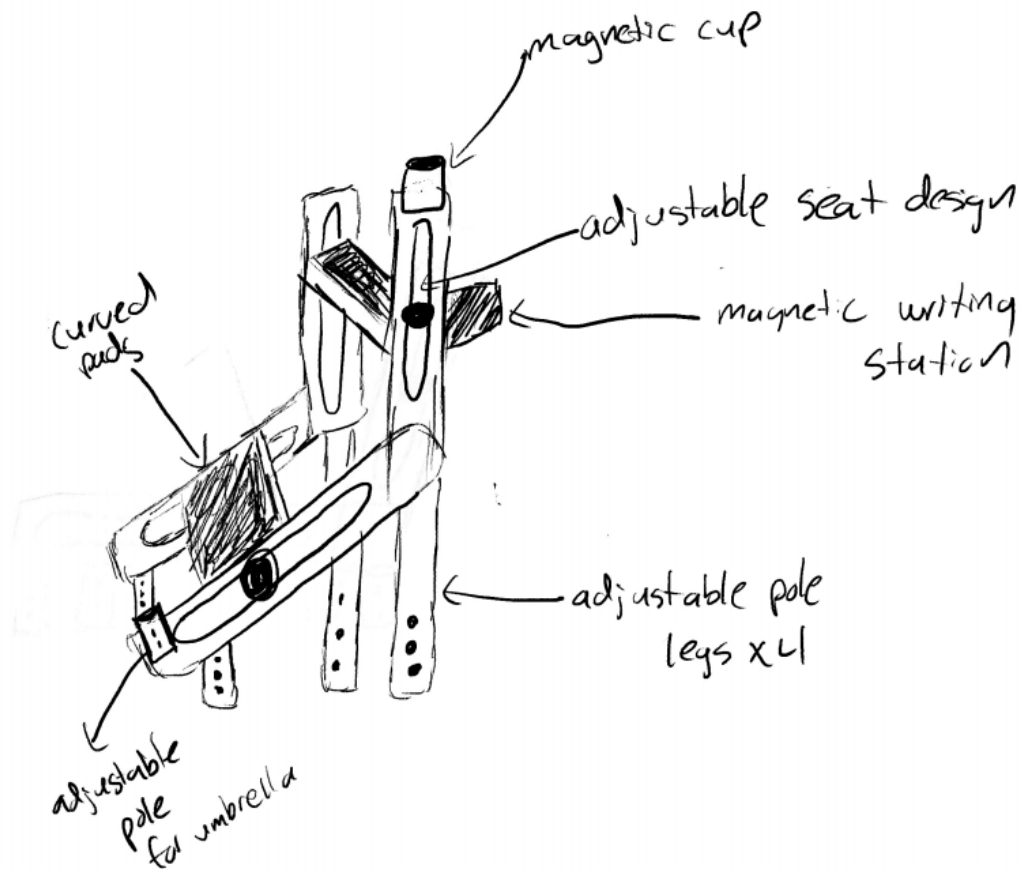 magnetic cup
adjustable seat design
magnetic writing
station
curved
pads
adjustable pole
legs x4
adjustable
pole
for umbrella